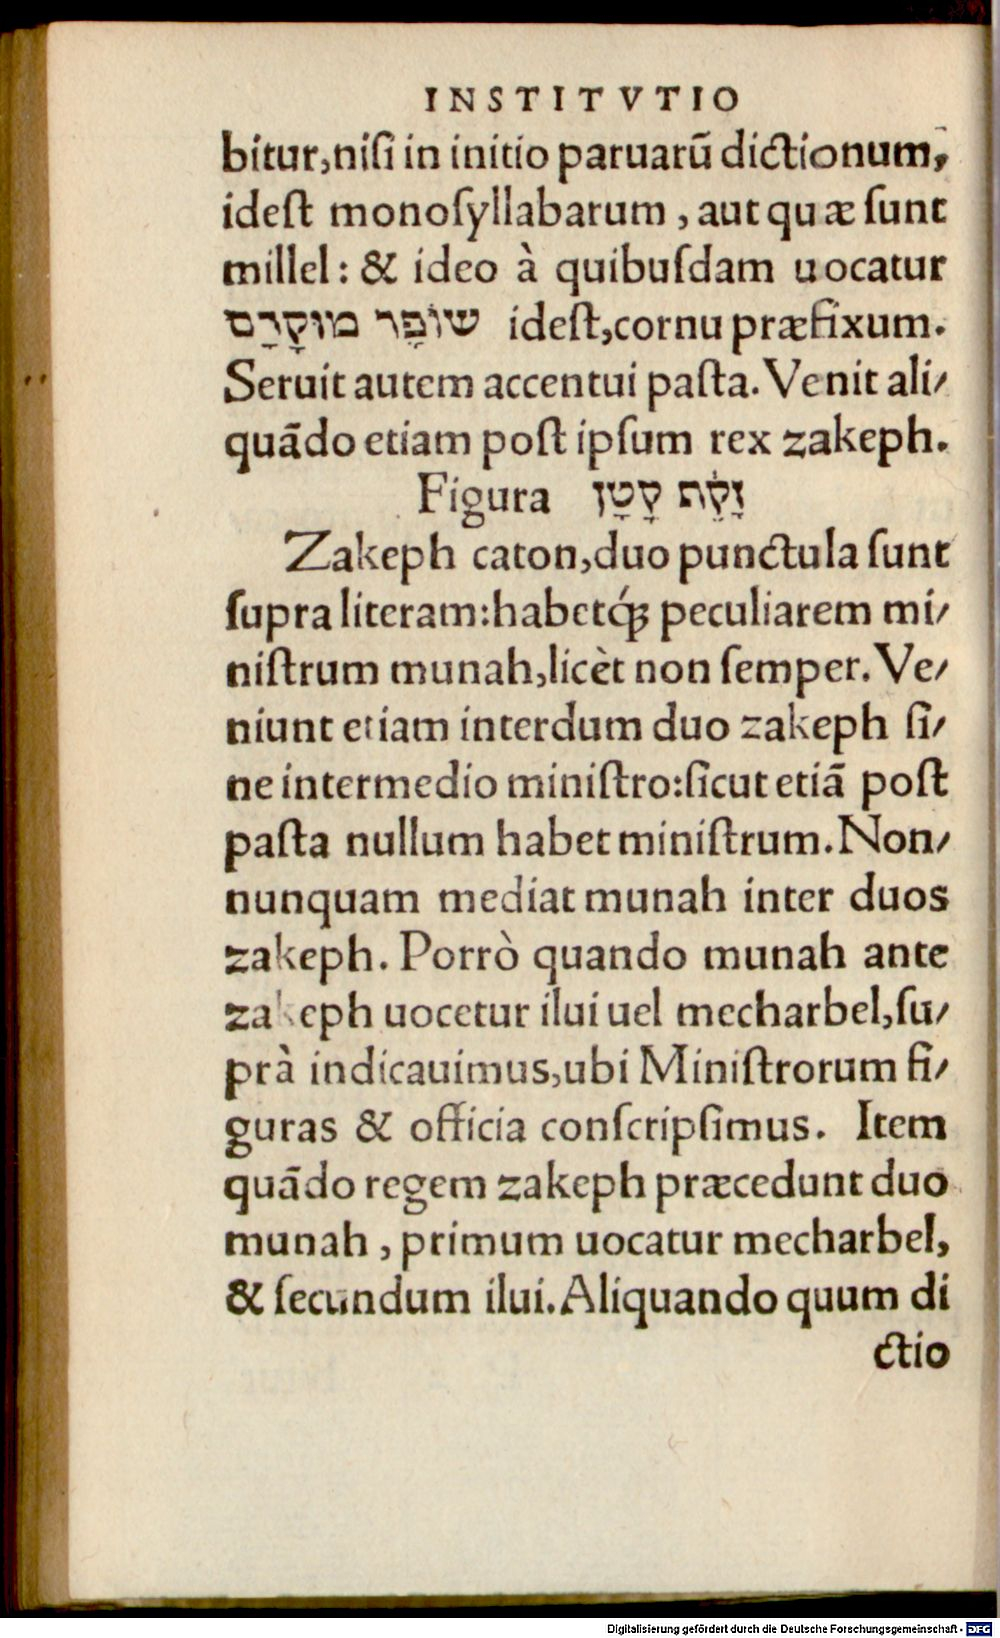 INSTITVTIO
bitur,niſi in initio paruarũ dictionum,
ideſt monoſyllabarum , aut quæ ſunt
millel : & ideo à quibuſdam uocatur
שׁוֹפָר מוּקְדָם ideſt,cornu præfixum.
Seruit autem accentui paſta. Venit ali/
quãdo etiam poſt ipſum rex zakeph.
Figura זָקֵף קָטָן
Zakeph caton,duo punctula ſunt
ſupra literam:habetq́ꝫ peculiarem mi/
niſtrum munah,licèt non ſemper. Ve/
niunt etiam interdum duo zakeph ſi/
ne intermedio miniſtro:ſicut etiã poſt
paſta nullum habet miniſtrum. Non/
nunquam mediat munah inter duos
zakeph. Porrò quando munah ante
zakeph uocetur ilui uel mecharbel,ſu/
prà indicauimus,ubi Miniſtrorum fi/
guras & officia conſcripſimus. Item
quãdo regem zakeph præcedunt duo
munah , primum uocatur mecharbel,
& ſecundum ilui. Aliquando quum di
ctio
Digitalisierung gefördert durch die Deutsche Forschungsgemeinschaft - DFG